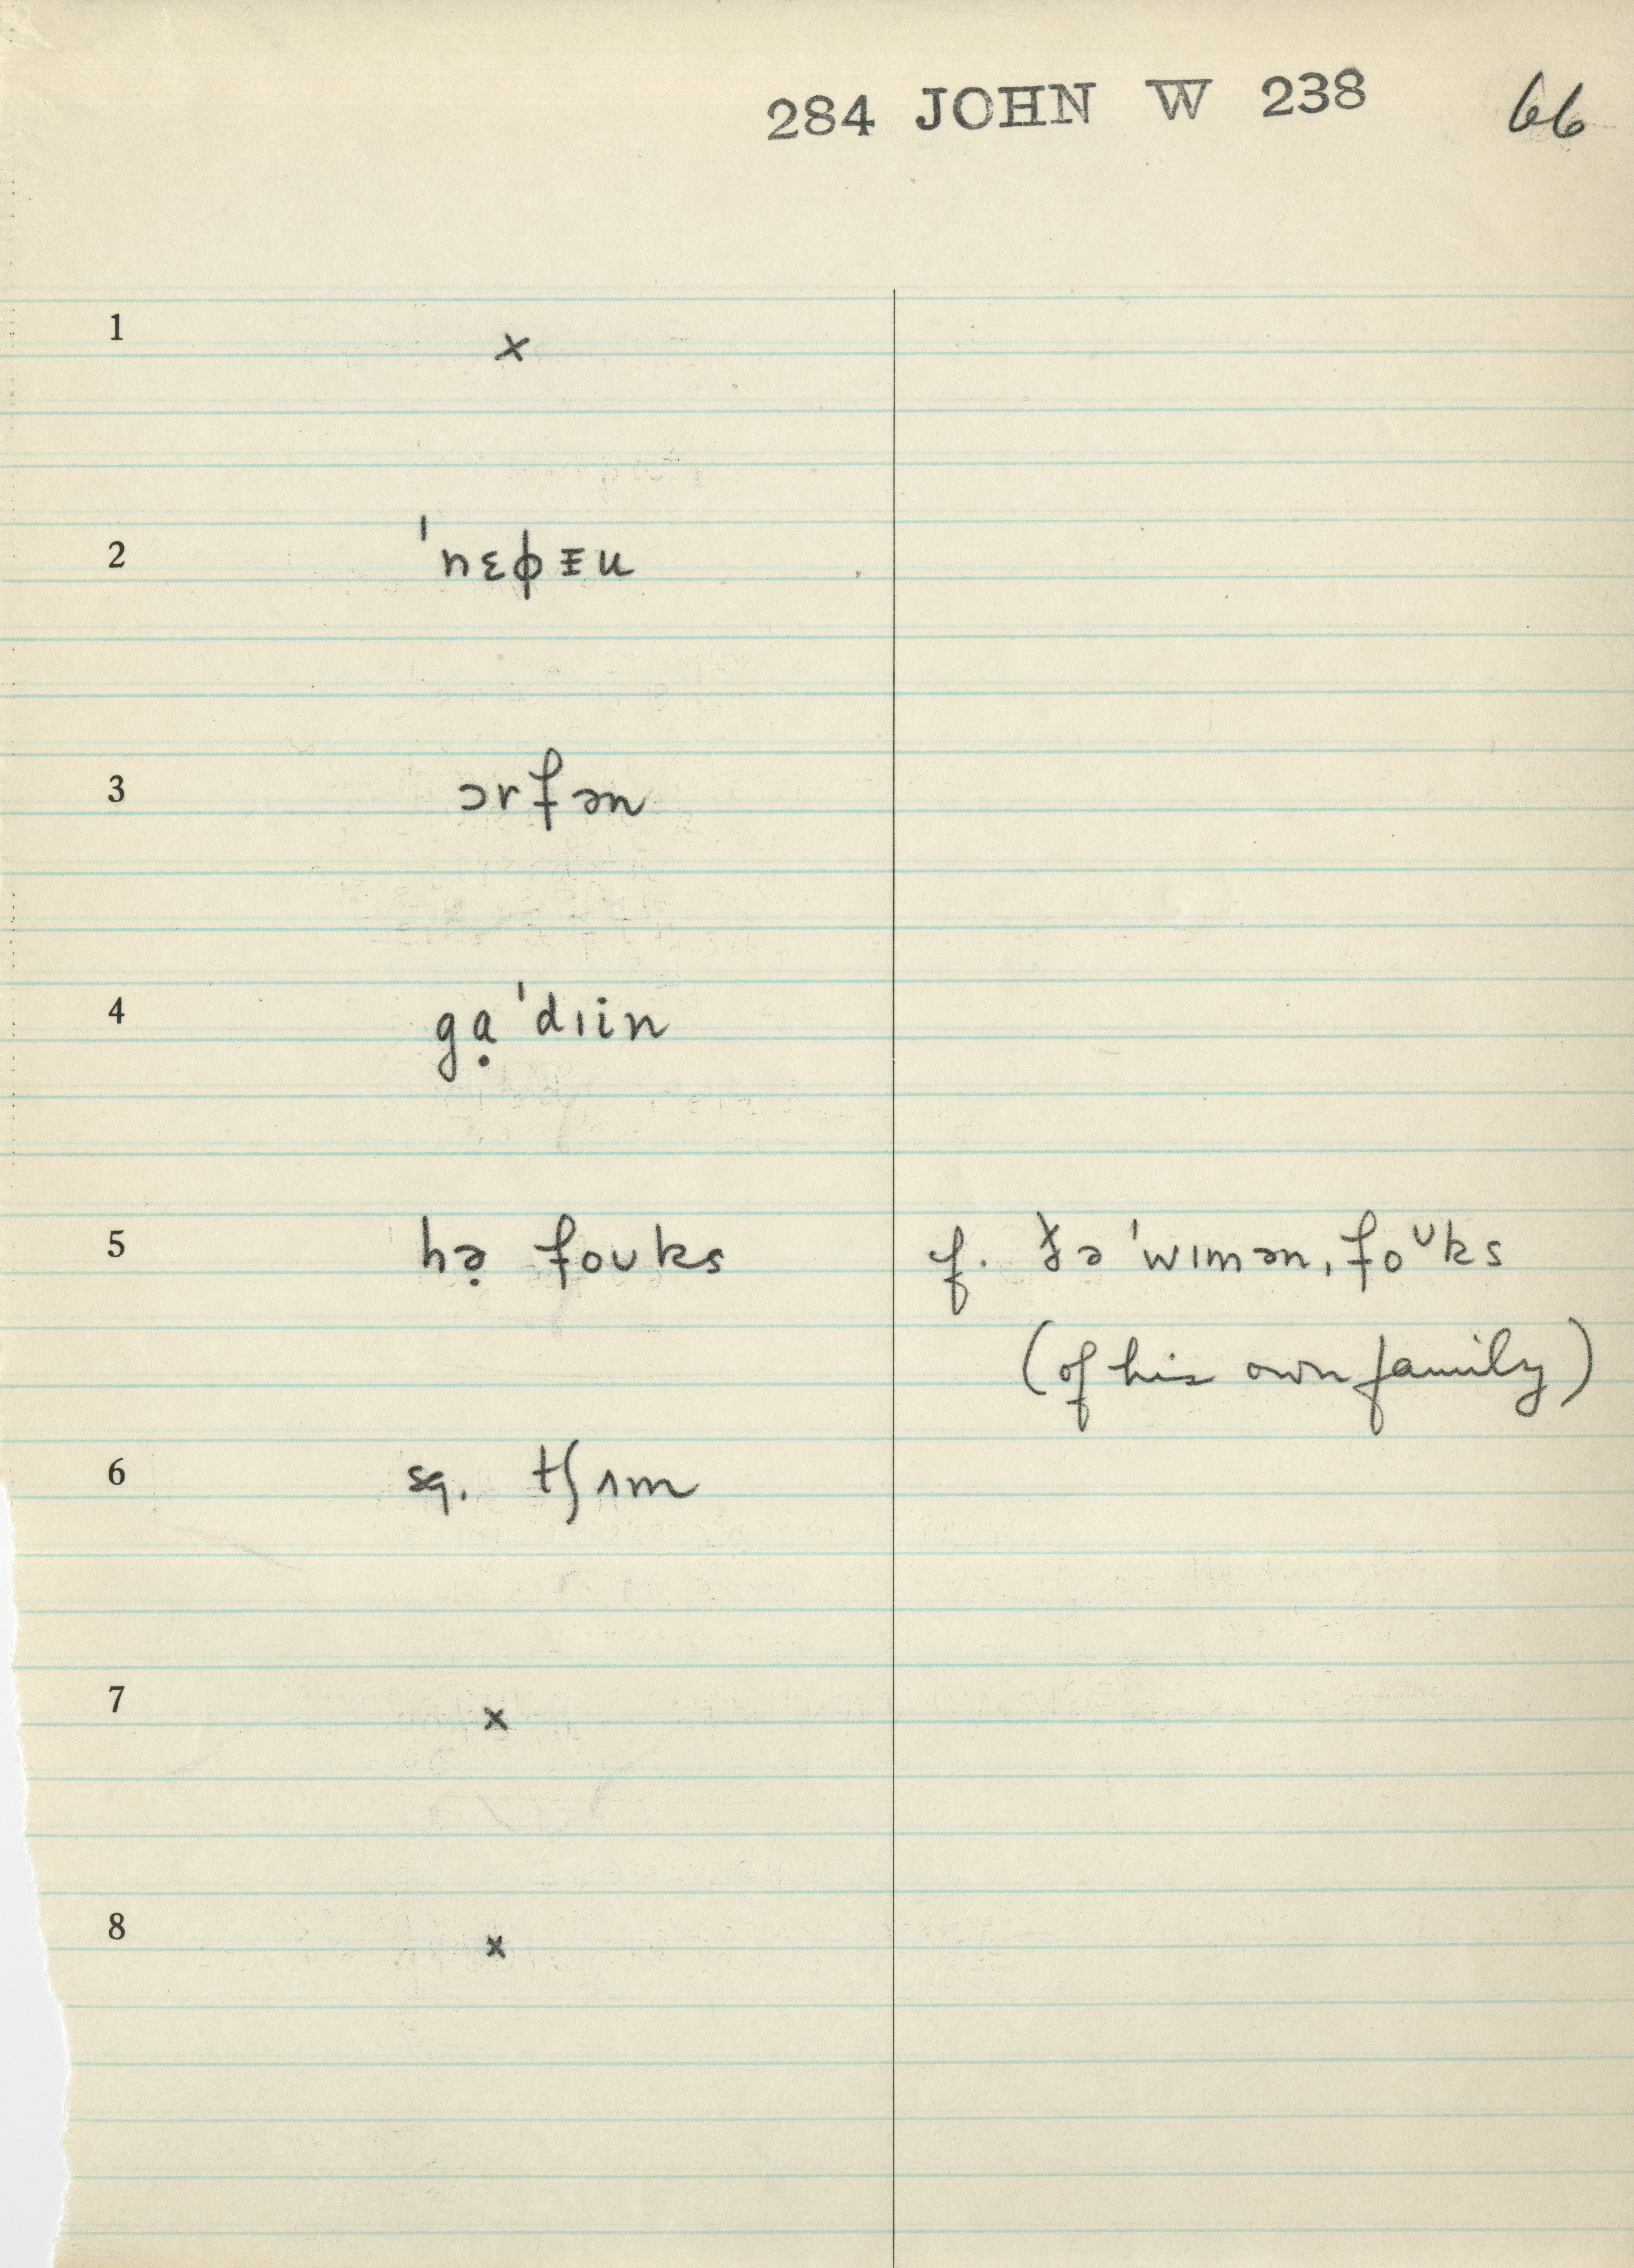 284 JOHN W 238 66
1 ×
2 ˈnɛɸᵻu
3 ɔrfən
4 gạˈdɪin
5 hə̣ foʊks f. ðəˈwɪmən, foᶷks
(of his own family)
6 sq. tʃʌm
7 ×
8 ×